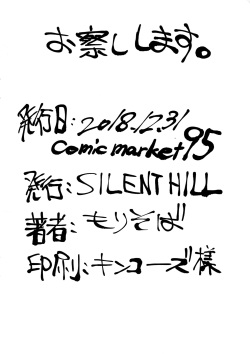 お察しします。
発行日:2018.12.31
Comic market 95
発行:SILENT HILL
著者:もりそば
印刷:キンコーズ様